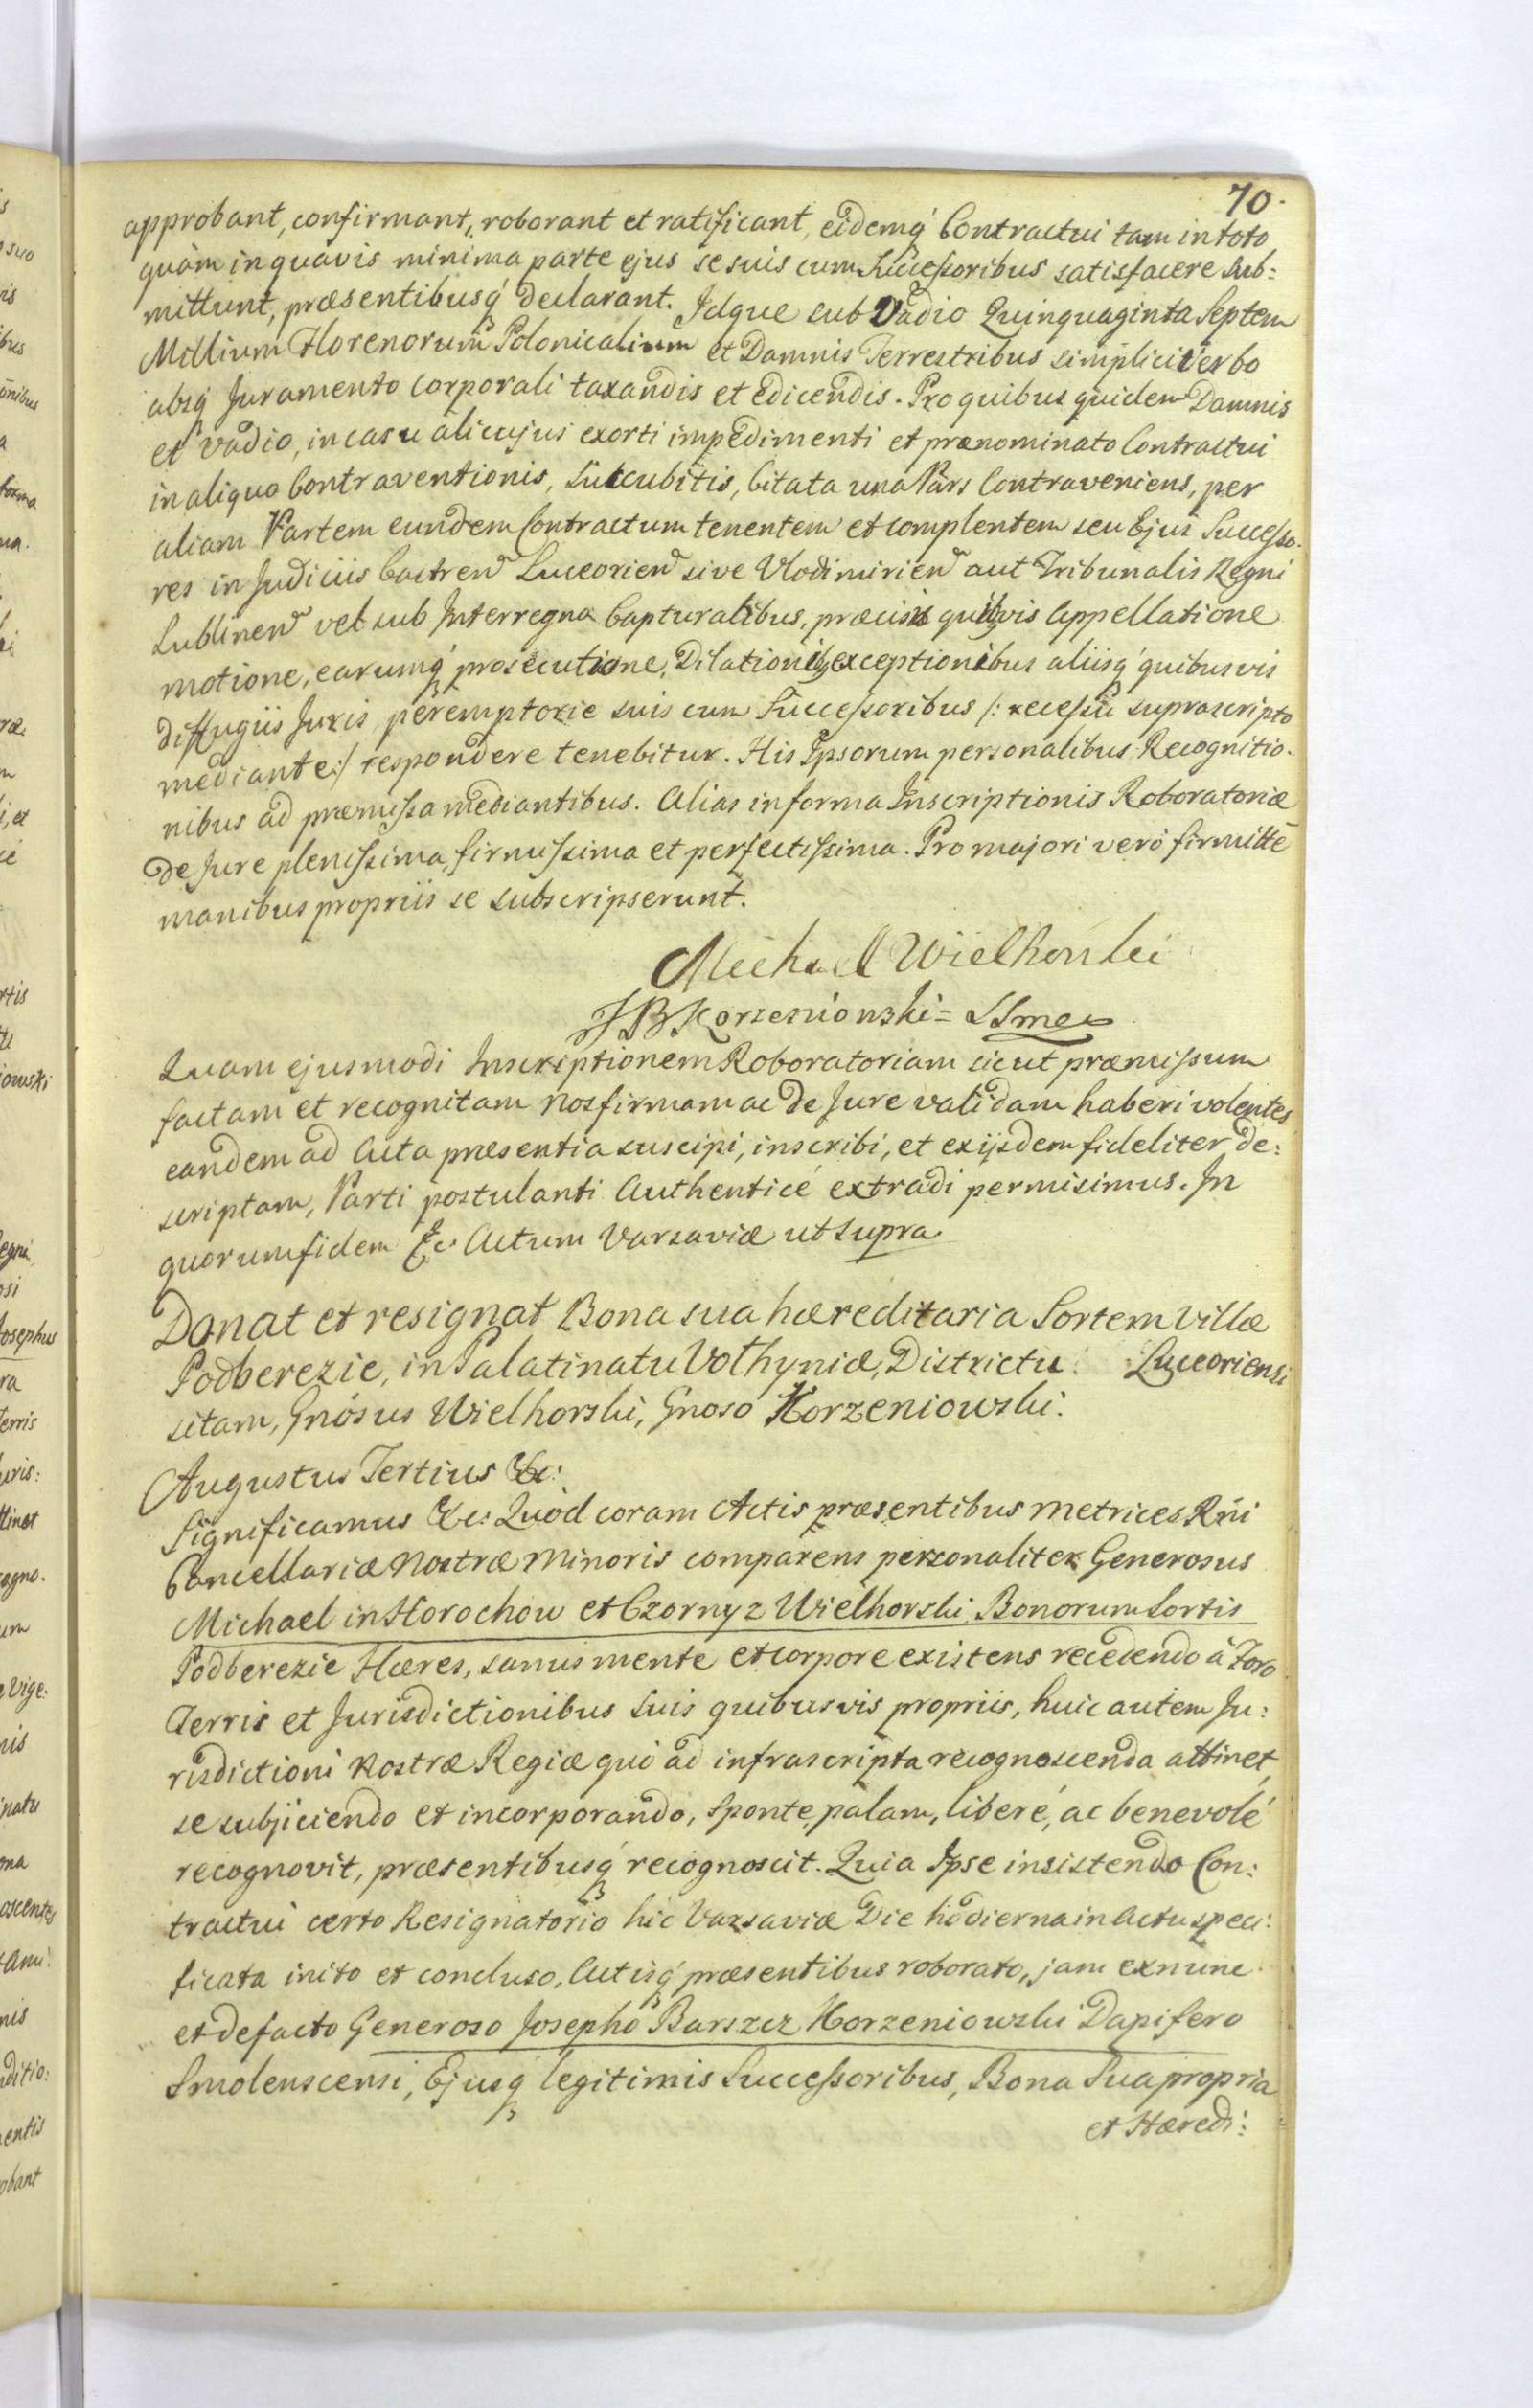 70.
approbant, confirmant, roborant et ratificant, eidemq́ Contractui tam in toto
quàm in quavis minima parte ejus se suis cum Successoribus satisfacere sub:
mittunt, præsentibusq́ declarant. Idque sub Vadio Quinquaginta Septem
Millium Florenorum Polonicalium et Damnis Terrestribus simplici Verbo
absq́ Juramento corporali taxandis et edicendis. Pro quibus quidem Damnis
et vadio, in casu alicujus exorti impedimenti et prænominato Contractui
in aliquo Contraventionis, succubitis, Citata una Pars Contraveniens, per
aliam Partem eundem Contractum tenentem et complentem seu Ejus Successo.
res in Judiciis Castren̄ Luceorien̄ sive Vlodimirien̄ aut Tribunalis Regni
Lublinen̄ vel sub Interregna Capturalibus, præcisis quibvis Appellatione
motione, earumq́ prosecutione, Dilationibȝ exceptionibus aliisq́ quibusvis
diffugiis Juris, peremptorie suis cum Successoribus /: recessu suprascripto
mediante:/ respondere tenebitur. His Ipsorum personalibus Recognitio.
nibus ad præmissa mediantibus. Alias in forma Inscriptionis Roboratoriæ
de Jure plenissima, firmissima et perfectissima. Pro majori verò firmitte
manibus propriis se subscripserunt.
Michael Wielhorski
J B Korzeniowski = SSmo
Quam ejusmodi Inscriptionem Roboratoriam sicut præmissum
factam et recognitam Nos firmam ac de Jure validam haberi volentes
eandem ad Acta præsentia suscipi, inscribi, et ex ijsdem fideliter de:
scriptam, Parti postulanti Authenticè extradi permisimus. In
quorum fidem &c. Actum Varsaviæ ut supra.
Donat et resignat Bona sua hæreditaria Sortem Villæ
Podberezie, in Palatinatu Volhyniæ, Districtu Luceoriensi
sitam, Gnosus Wielhorski, Gnoso Korzeniowski.
Augustus Tertius &c:
Significamus &c: Quòd coram Actis præsentibus Metrices Rn̄i
Cancellariæ Nostræ Minoris comparens personaliter Generosus
Michael in Horochow et Czornyz Wielhorski, Bonorum Sortis
Podberezie Hæres, sanus mente et corpore existens recedendo à Foro
Terris et Jurisdictionibus suis quibusvis propriis, huic autem Ju:
risdictioni Nostræ Regiæ quò ad infrascripta recognoscenda attinet,
se subjiciendo et incorporando, sponte, palam, liberé, ac benevolé
recognovit, præsentibusq́ recognoscit. Quia Ipse insistendo Con:
tractui certo Resignatorio hic Varsaviæ Die hodierna in Actu speci:
ficata inito et concluso, Actisq́ præsentibus roborato, jam exnunc
et defacto Generoso Josepho Barszcz Korzeniowski Dapifero
Smolenscensi, Ejusq́ legitimis Successoribus, Bona Sua propria
et Hæredi: